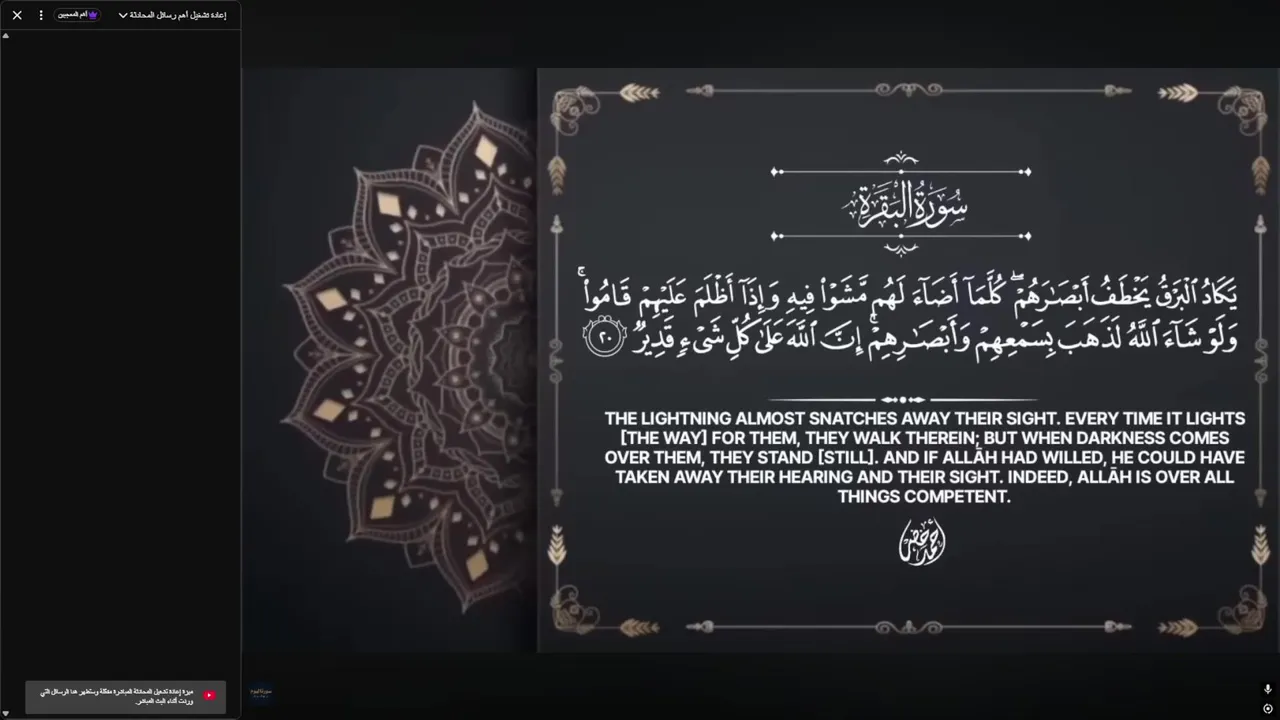 إعادة تشغيل أهم رسائل المحادثة
أهم المعجبين
سُورَةُ الْبَقَرَةِ
يَكَادُ ٱلْبَرْقُ يَخْطَفُ أَبْصَـٰرَهُمْ ۖ كُلَّمَآ أَضَآءَ لَهُم مَّشَوْا۟ فِيهِ وَإِذَآ أَظْلَمَ عَلَيْهِمْ قَامُوا۟ ۚ
وَلَوْ شَآءَ ٱللَّهُ لَذَهَبَ بِسَمْعِهِمْ وَأَبْصَـٰرِهِمْ ۚ إِنَّ ٱللَّهَ عَلَىٰ كُلِّ شَىْءٍ قَدِيرٌ ٢٠
THE LIGHTNING ALMOST SNATCHES AWAY THEIR SIGHT. EVERY TIME IT LIGHTS
[THE WAY] FOR THEM, THEY WALK THEREIN; BUT WHEN DARKNESS COMES
OVER THEM, THEY STAND [STILL]. AND IF ALLĀH HAD WILLED, HE COULD HAVE
TAKEN AWAY THEIR HEARING AND THEIR SIGHT. INDEED, ALLĀH IS OVER ALL
THINGS COMPETENT.
أحمد خضر
ميزة إعادة تشغيل المحادثة المباشرة مفعّلة وستظهر هنا الرسائل التي
وردت أثناء البث المباشر.